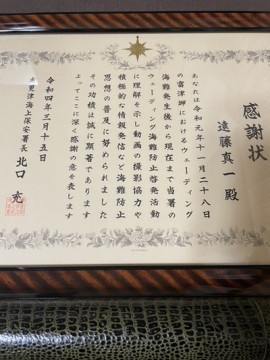 感謝状
遠藤真一殿
あなたは令和元年十一月二十八日
の富津岬におけるウェーディング
海難発生後から現在まで当署の
ウェーディング海難防止啓発活動
に理解を示し動画の撮影協力や
積極的な情報発信など海難防止
思想の普及に努められました
その功績は誠に顕著であります
よってここに深く感謝の意を表します
令和四年三月十五日
木更津海上保安署長 北口 充